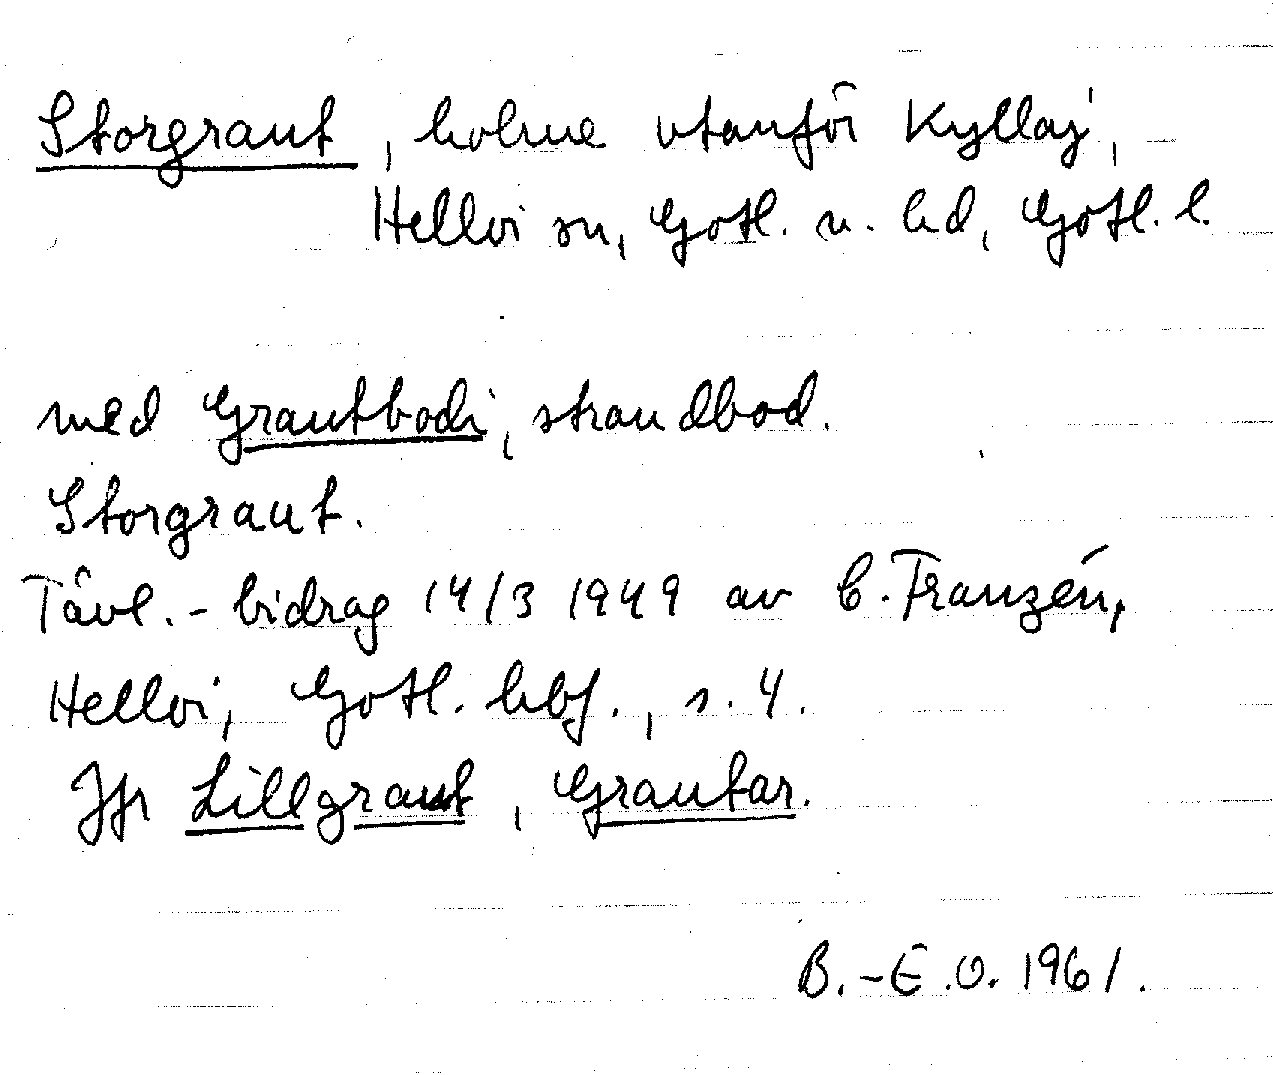 Storgraut, holme utanför Kyllaj,
Hellvi sn, Gotl. n. hd, Gotl. l.
med Grautbodi, strandbod.
Storgraut.
Tävl.-bidrag 14/3 1949 av C. Franzén,
Hellvi, Gotl. hbf., s. 4.
Jfr Lillgraut, Grautar.
B.-E.O. 1961.